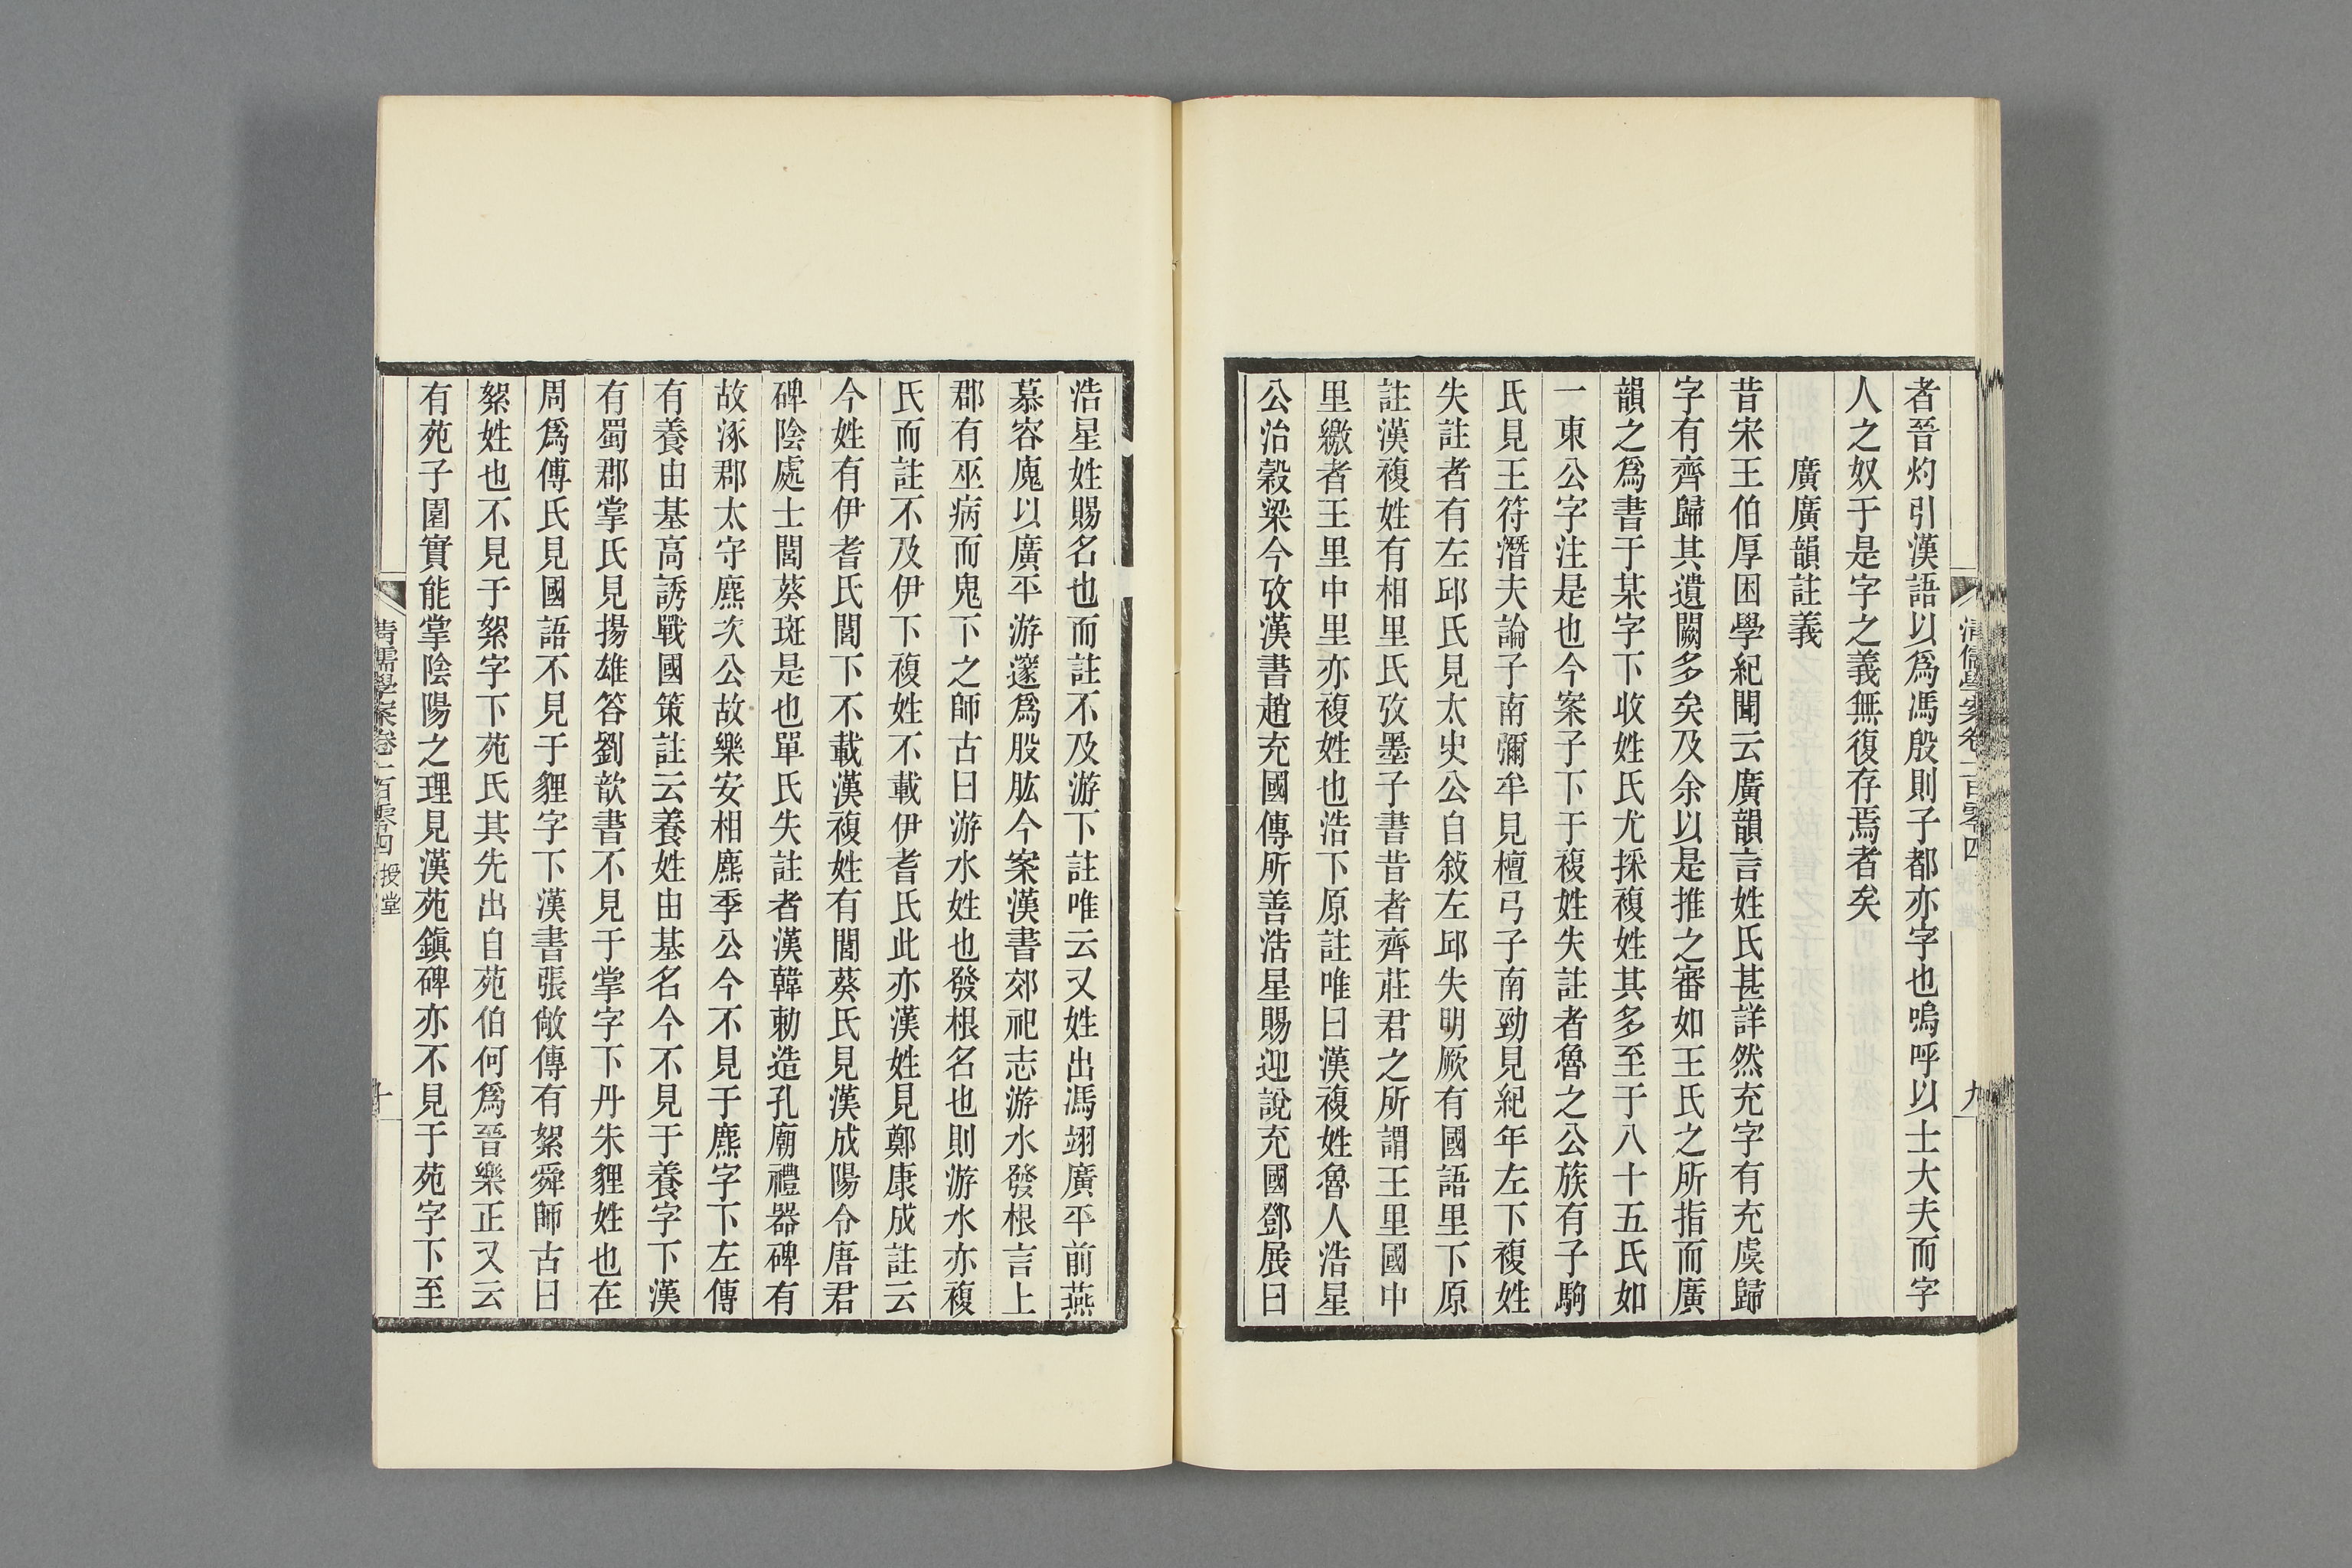 者晉灼引漢語以爲馮殷則子都亦字也嗚呼以士大夫而字
人之奴于是字之義無復存焉者矣
廣廣韻註義
昔宋王伯厚困學紀聞云廣韻言姓氏甚詳然充字有充虞歸
字有齊歸其遺闕多矣及余以是推之審如王氏之所指而廣
韻之爲書于某字下收姓氏尤採複姓其多至于八十五氏如
一東公字注是也今案子下于複姓失註者魯之公族有子駒
氏見王符潛夫論子南彌牟見檀弓子南勁見紀年左下複姓
失註者有左邱氏見太史公自敍左邱失明厥有國語里下原
註漢複姓有相里氏攷墨子書昔者齊莊君之所謂王里國中
里繳者王里中里亦複姓也浩下原註唯曰漢複姓魯人浩星
公治穀梁今攷漢書趙充國傳所善浩星賜迎說充國鄧展曰
清儒學案卷二百零四
九
浩星姓賜名也而註不及游下註唯云又姓出馮翊廣平前燕
慕容廆以廣平游邃爲股肱今案漢書郊祀志游水發根言上
郡有巫病而鬼下之師古曰游水姓也發根名也則游水亦複
氏而註不及伊下複姓不載伊耆氏此亦漢姓見鄭康成註云
今姓有伊耆氏閭下不載漢複姓有閭葵氏見漢成陽令唐君
碑陰處士閭葵斑是也單氏失註者漢韓勅造孔廟禮器碑有
故涿郡太守麃次公故樂安相麃季公今不見于麃字下左傳
有養由基高誘戰國策註云養姓由基名今不見于養字下漢
有蜀郡掌氏見揚雄答劉歆書不見于掌字下丹朱貍姓也在
周爲傅氏見國語不見于貍字下漢書張敞傳有絮舜師古曰
絮姓也不見于絮字下苑氏其先出自苑伯何爲晉樂正又云
有苑子園實能掌陰陽之理見漢苑鎮碑亦不見于苑字下至
清儒學案卷二百零四 授堂
十